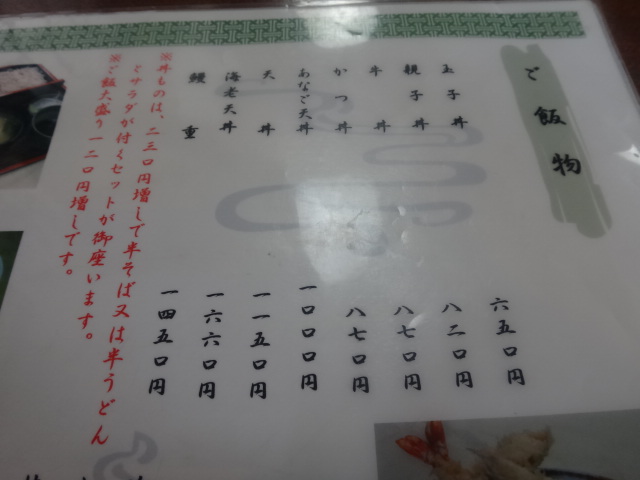 ご飯物
玉子丼 六五〇円
親子丼 八二〇円
牛丼 八七〇円
かつ丼 八七〇円
あなご天丼 一〇〇〇円
天丼 一一五〇円
海老天丼 一六六〇円
鰻重 一四五〇円
※丼ものは、二三〇円増しで半そば又は半うどん
とサラダが付くセットが御座います。
※ご飯大盛り一二〇円増しです。